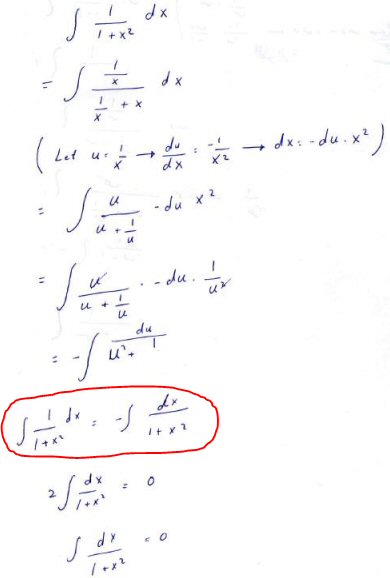 ∫ 1/(1+x²) dx
= ∫ (1/x)/(1/x + x) dx
( Let u = 1/x → du/dx = -1/x² → dx = -du · x² )
= ∫ u/(u + 1/u) -du x²
= ∫ u/(u + 1/u) · -du · 1/u²
= -∫ du/(u²+1)
∫ 1/(1+x²) dx = -∫ dx/(1+x²)
2 ∫ dx/(1+x²) = 0
∫ dx/(1+x²) = 0